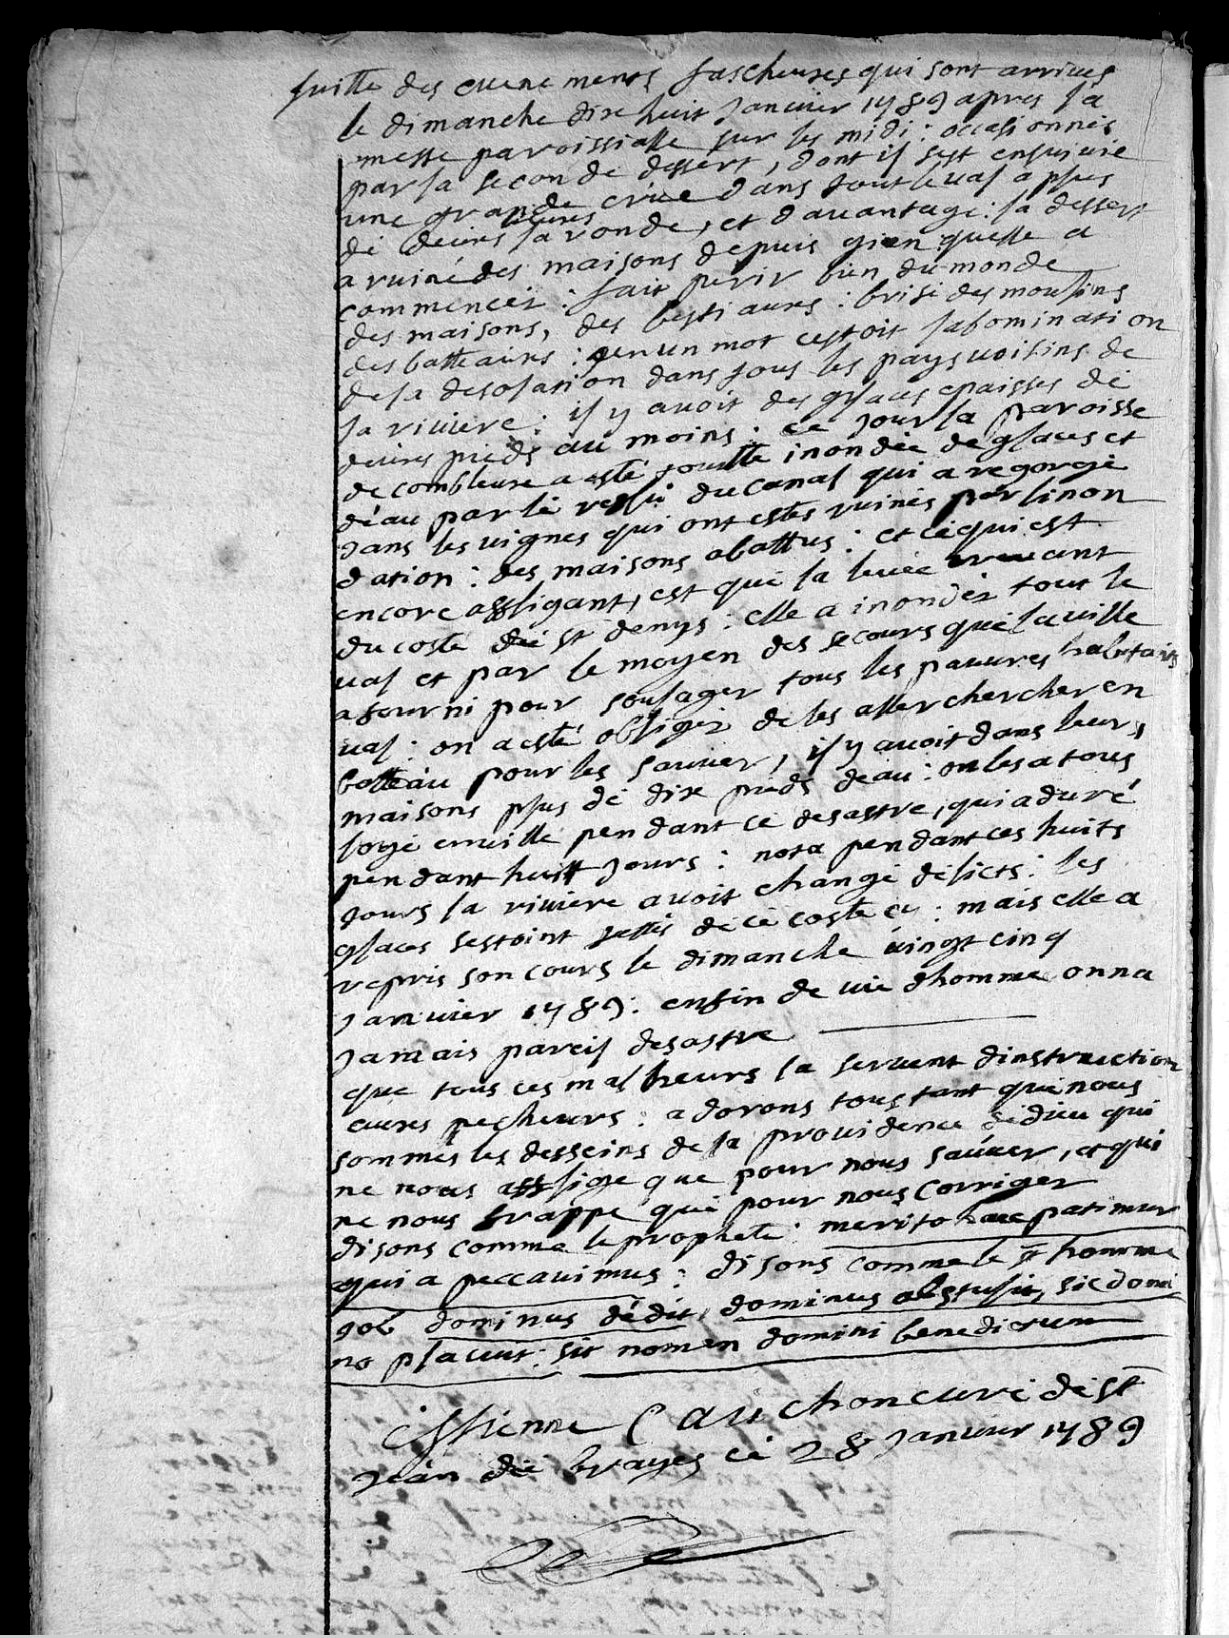 suitte des evenements fascheuses qui sont arrives
le dimanche dixhuit Janvier 1789 apres la
messe paroissialle sur les midi : occasionnés
par la seconde dessert, dont il sest ensuivie
une grande crüe dans tout le val a plus
de deuxs lieues la ronde, et davantage : la dessert
a ruiné des maisons depuis gien quelle a
commencér : fait perir bien du monde
des maisons, des bestiaures : brisé des moulins
des batteaures : en un mot cestoit labomination
de la desolation dans tous les pays voisins de
la riviere : il y avoit des glaces epaisses de
deuxs pieds au moins : ce jour la paroisse
de combleuxe a esté toutte inondée de glaces et
déau par le reflü du canal qui a regorgé
dans les vignes qui ont estes ruinés par linon
dation : des maisons abattus : et ce qui est
encore affligant, est que la levée crevant
du costé de st denys : elle a inondér tout le
val et par le moyen des secours que la ville
a fourni pour soulager tous les pauvres habitants
val : on a esté obligér de les aller chercher en
batteàu pour les sauver, il y avoit dans leurs
maisons plus de dix pieds deau : on les a tous
logé en ville pendant ce desastre, qui a duré
pendant huitt jours : nota pendant ces huits
jours la riviere avoit changé de licts : les
glaces sestoint jettés de ce costé cy : mais elle a
repris son cours le dimanche vingt cinq
Janvier 1789 : enfin de vie dhomme on na
jamais pareil desastre
que tous ces malheurs la servent dinstruction
aures pecheurs : adorons tous tant que nous
sommes les desseins de la providence de dieu qui
ne nous afflige que pour nous sauver, et qui
ne nous frappe que pour nous corriger
disons comme le prophete : merito haec patimur
quia peccavimus : disons comme le st homme
job dominus dédit, dominus abstulit, sic domi
no placuit : sit nomen domini benedictum
Estienne Cauchon curé de st
jean de brayes ce 28 janvier 1789